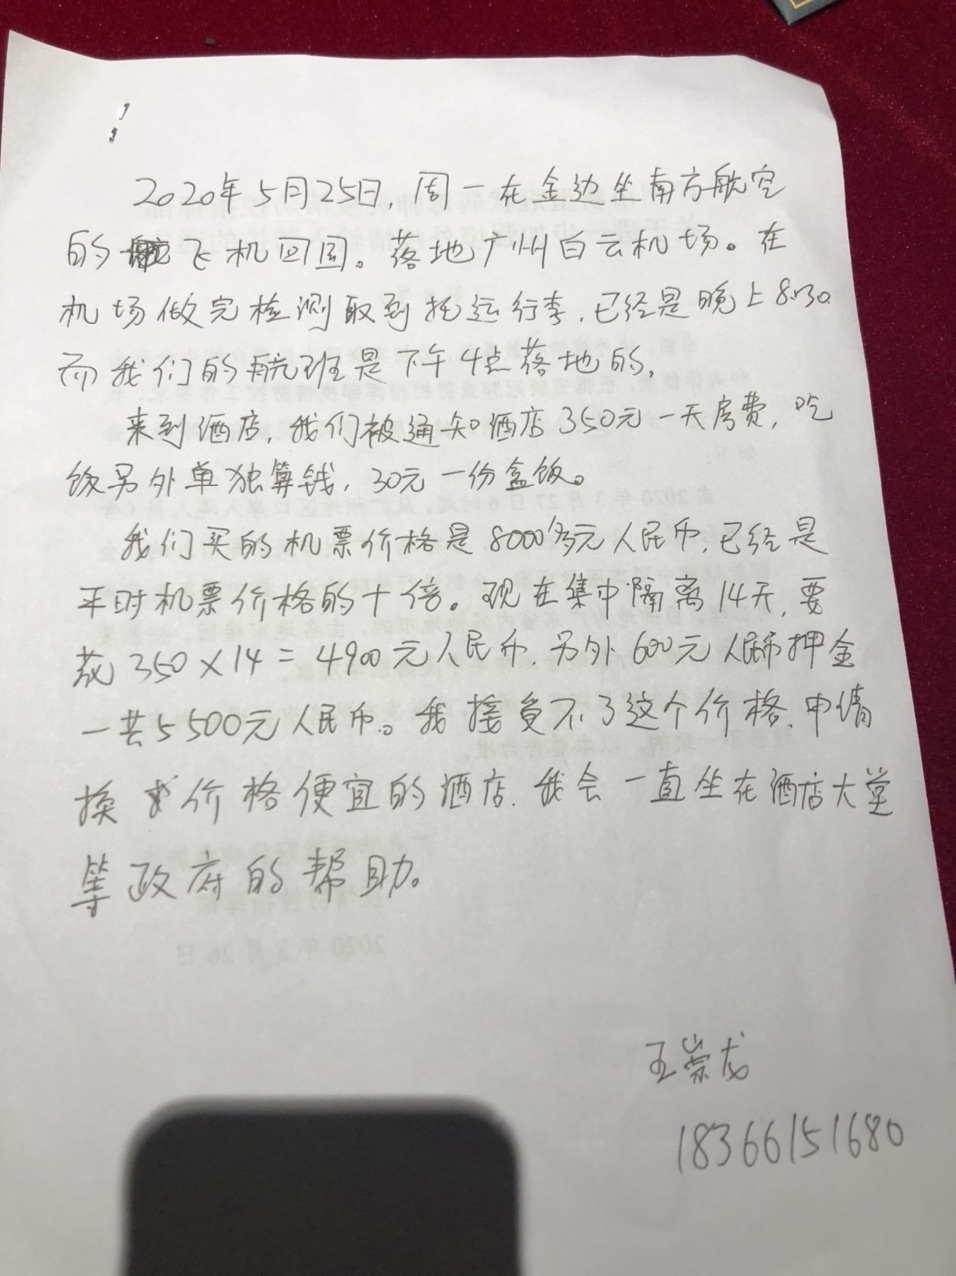 2020年5月25日,周一在金边坐南方航空
的飞机回国。落地广州白云机场。在
机场做完检测取到托运行李,已经是晚上8:30
而我们的航班是下午4点落地的,
来到酒店,我们被通知酒店350元一天房费,吃
饭另外单独算钱,30元一份盒饭。
我们买的机票价格是8000多元人民币,已经是
平时机票价格的十倍。现在集中隔离14天,要
花350×14=4900元人民币,另外600元人民币押金
一共5500元人民币。我接受不了这个价格,申请
换价格便宜的酒店,我会一直坐在酒店大堂
等政府的帮助。
王崇龙
18366151680
2020年3月26日